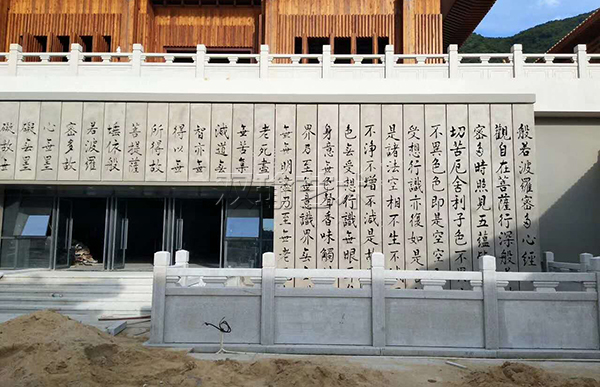 般若波羅密多心經
觀自在菩薩行深般
密多時照見五蘊
切苦厄舍利子色不
不異色色即是空空
受想行識亦復如是
是諸法空相不生不
不淨不增不減是故
色無受想行識無眼
身意無色聲香味觸
界乃至無意識界無
無無明盡乃至無老
老死盡
無苦集
滅道無
智亦無
得以無
所得故
菩提薩
埵依般
若波羅
密多故
心無罣
礙無罣
礙故無